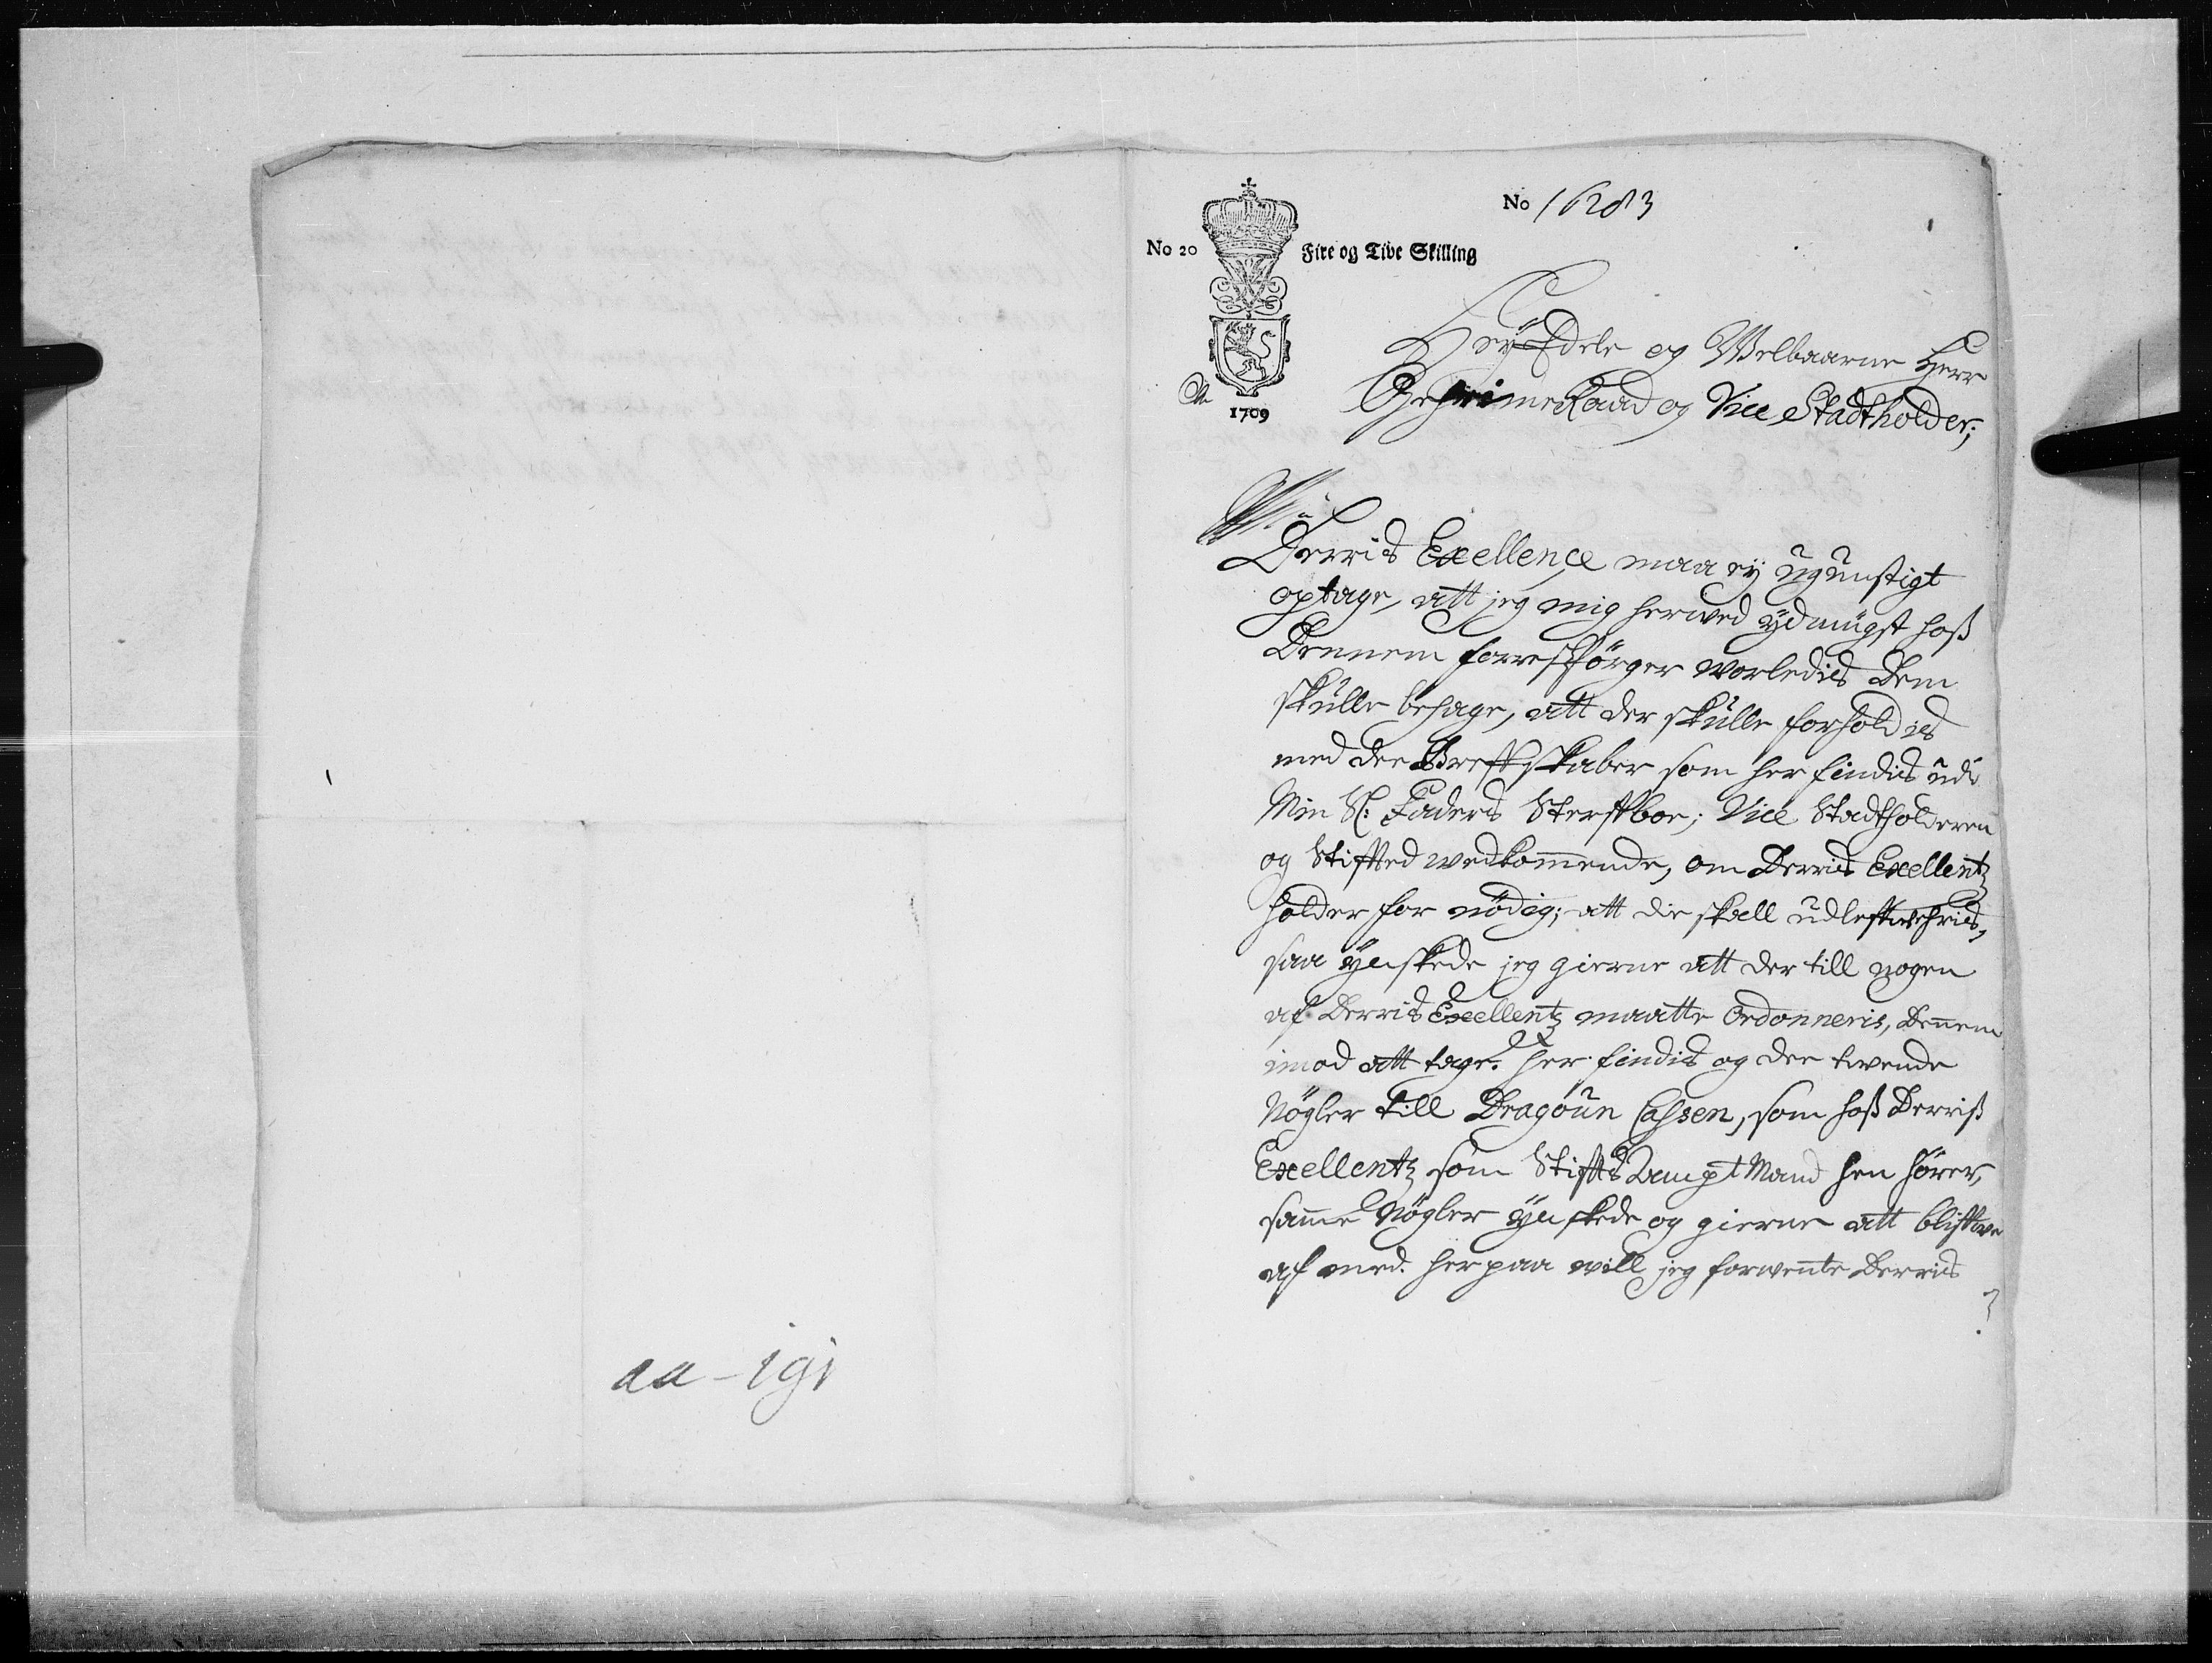 No 16283
No 20
Fire og Tive Skilling
1709
HøyEdele og Welbaarne Herr
GeheimeRaad og Vice Stadtholder;
Derris Excellence maa ey ugunstigt
optage, att jeg mig herwed ydmügst hoß
Dennem forespörger worledis dem
skulle behage, att der skulle forholdis
med dee Breffskaber som her findis udi
Min Sl: Faders Sterffboe; Vice Stadtholderen
og Stifted wedkommende, om Derris Excellentz
holder for nödig; att die skall udleffwehris,
saa ynskede jeg gierne att der till nogen
af Derris Excellentz maatte Ordonneris, Dennem
imod att tage. Her findis og dee twende
Nögler till Dragoun Cassen, som hoß Derriß
Excellentz som StifftsAmptMand hen hörer,
samme Nögler ynskede og gierne att bliffwe
af med. her paa will jeg forwente Derris
aa-191